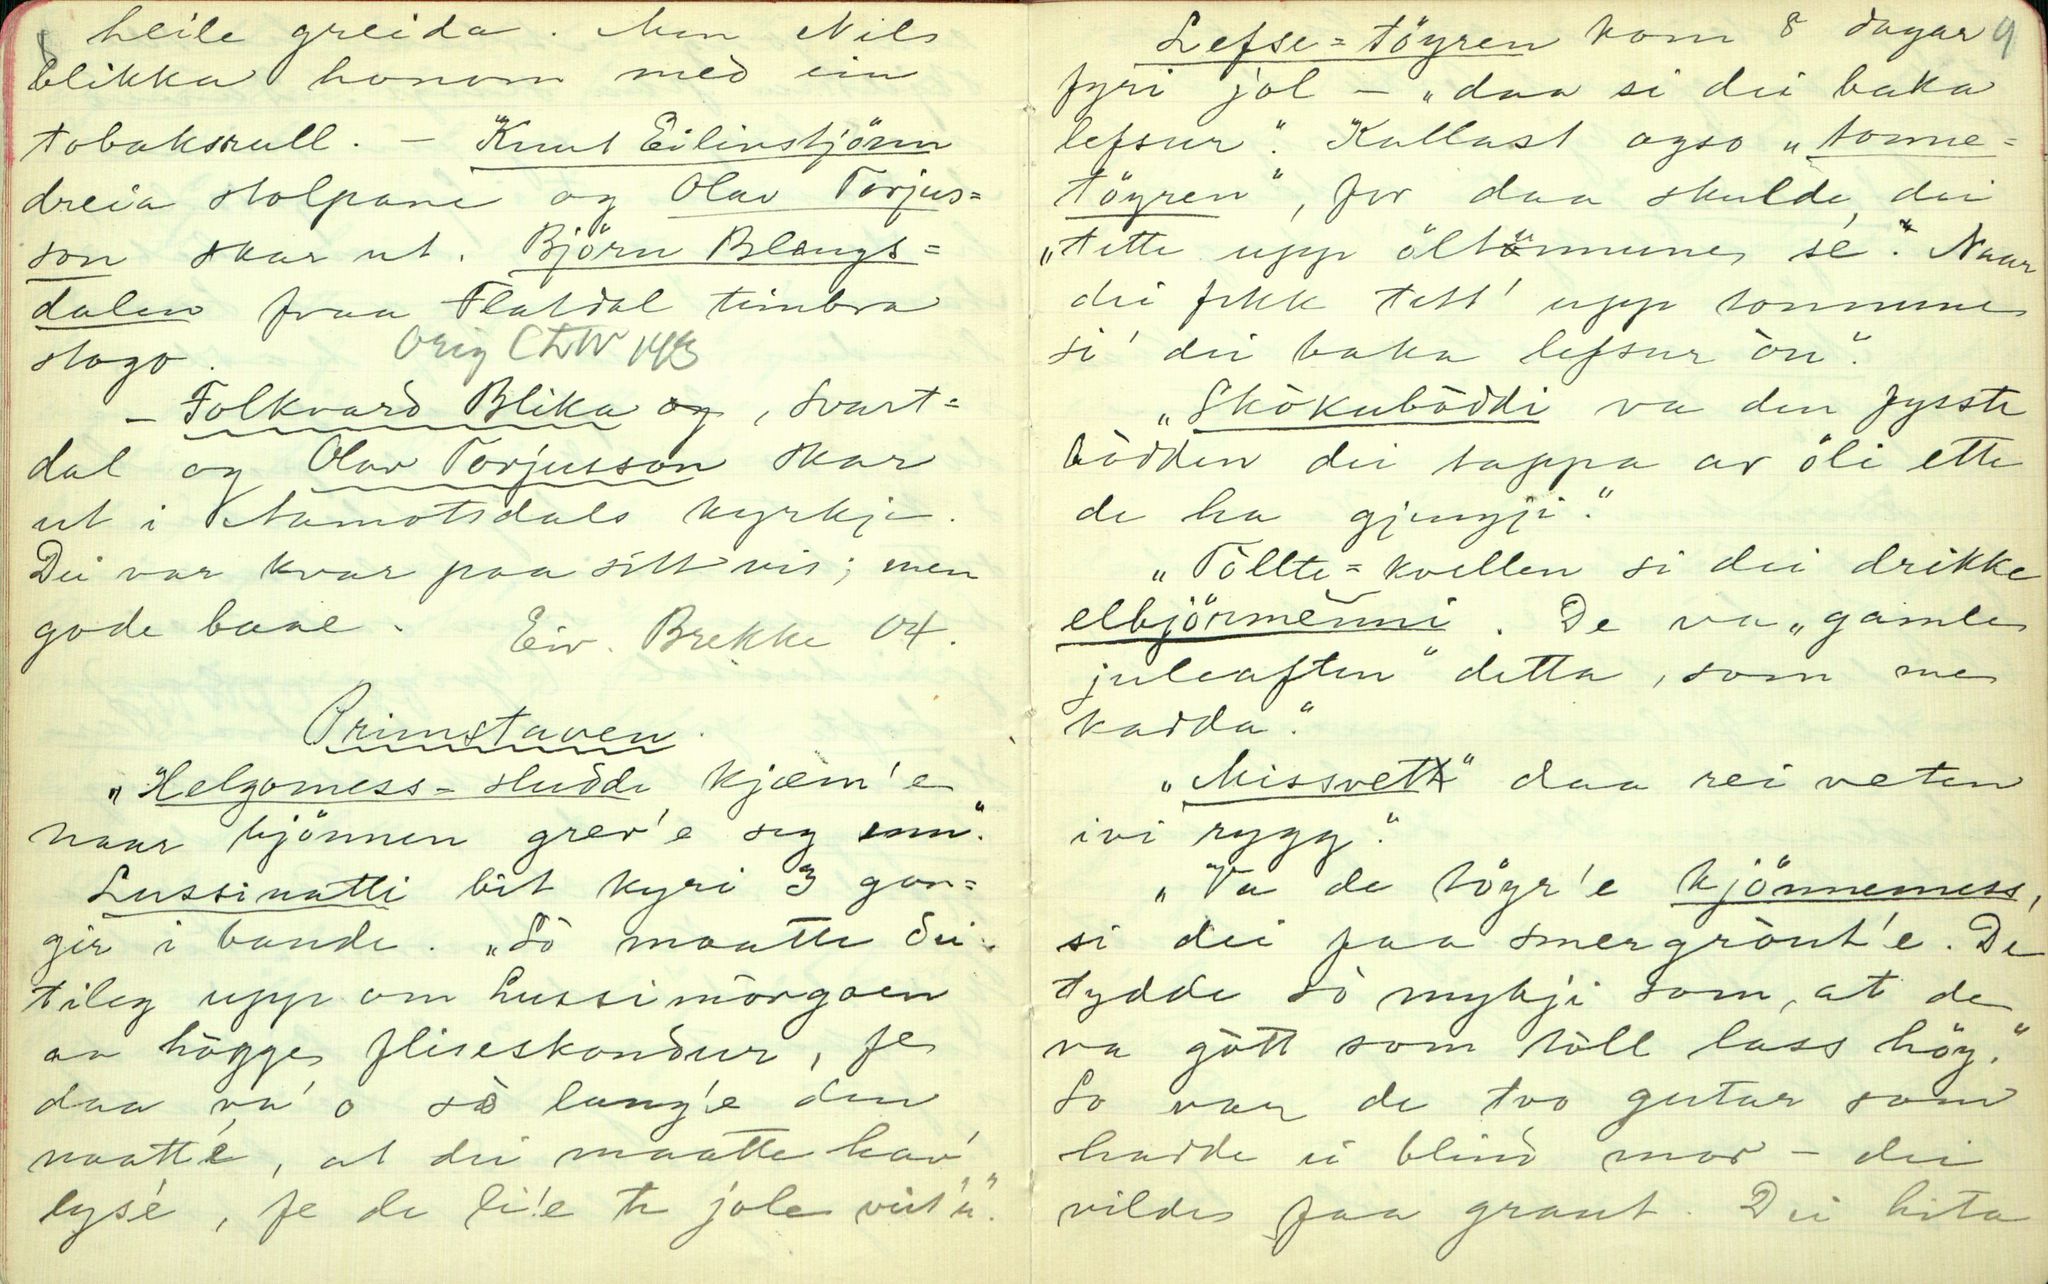 8
heile greida. Men Nils
blikka honom med ein
tobaksrull. – Knut Eilivstjönn
dreia stolpane og Olav Torjus=
son skar ut. Björn Blengs=
dalen fraa Flatdal timbra
stogo.
Orig
– Folkvard Blika og, Svart=
dal og Olav Torjusson skar
ut i Aamotsdals kyrkje.
Dei var kvar paa sitt vis; men
gode baae.
Eiv. Brekke 04.
Primstaven.
"Helgomess-sludde kjæm'e
naar bjönnen grev'e seg inn".
Lussinatti bit kyri 3 gon=
gir i bande. "Så maatte dei
tileg upp om Lussimorgoen
aa högge fliseskondur, fe
daa va' o så lang'e den
naatt'é, at dei maatte hav'
lys'é, fe de li'e te jole veit'u".
9
Lefse=töyren kom 8 dagar
fyri jol – "daa si dei baka
lefsur". Kallast ogso "tonne=
töyren", for daa skulde dei
"tette upp öltönnune sé". Naar
dei fekk tett' upp tonnune
si' dei baka lefsur òn".
"Skökuböddi va den fysste
bödden dei tappa av öli ette
de ha gjengji".
"Töllte=kvellen si dei drikke
elbjörmenni. De va "gamle
juleaften" detta, som me
kadda".
"Missvett" daa rei veten
ivi rygg".
"Va de töyr'e kjönnemess,
si dei faa smergröut'e. De
tydde so mykji som, at de
va gött som töll lass höy".
So var de tvo gutar som
hadde ei blind mor – dei
vilde faa graut. Dei hita